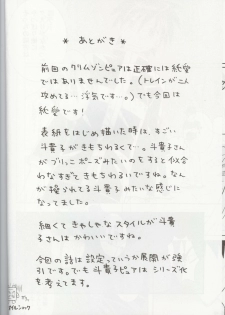 * あとがき *
前回のクリムゾンピュアは正確には純愛
ではありませんでした。(トレインがこん
攻めてる…浮気です…。)でも今回は
純愛です!
表紙をはじめ描いた時は、すごい
斗貴子がきもちわるくて…。斗貴子さん
がブリっこポーズみたいのをすると似合
わなすぎてきもちわるいですね。な
んか操られてる斗貴子みたいな感じに
なってました。
細くてきゃしゃなスタイルが斗貴
子さんはかわいいですね。
今回の話は設定っていうか展開が強
引です。でも斗貴子ピュアはシリーズ化
を考えてます。